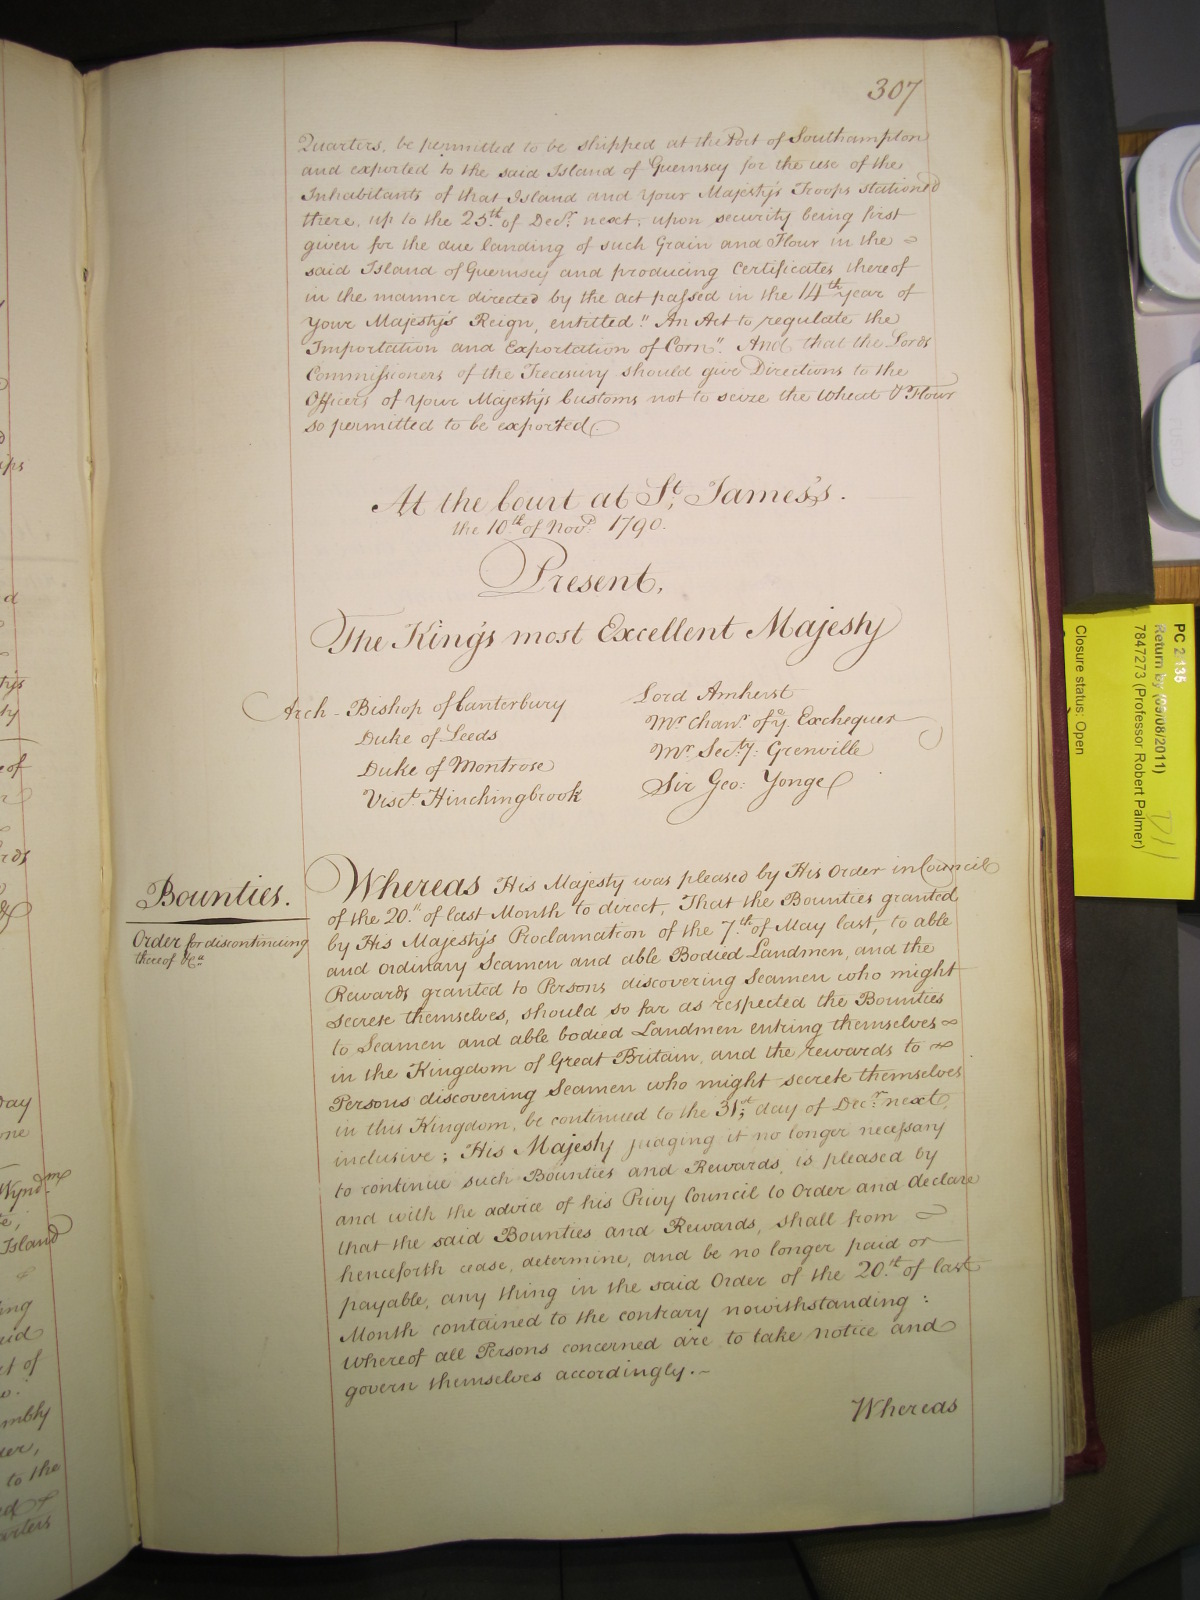 307
Quarters, be permitted to be shipped at the Port of Southampton
and exported to the said Island of Guernsey for the use of the
Inhabitants of that Island and Your Majesty's Troops station'd
there, up to the 25th of Decr. next, upon security being first
given for the due landing of such Grain and Flour in the
said Island of Guernsey and producing Certificates thereof
in the manner directed by the act passed in the 14th year of
Your Majesty's Reign, entitled "An Act to regulate the
Importation and Exportation of Corn". And that the Lords
Commissioners of the Treasury should give Directions to the
Officers of Your Majesty's Customs not to seize the Wheat & Flour
so permitted to be exported.
At the Court at St. James's.
the 10th of Novr. 1790.
Present,
The King's most Excellent Majesty
Arch-Bishop of Canterbury
Duke of Leeds
Duke of Montrose
Visct. Hinchingbrook
Lord Amherst
Mr. Chanr. of ye. Exchequer
Mr. Secty. Grenville
Sir Geo: Yonge
Bounties.
Order for discontinuing
thereof &ca.
Whereas His Majesty was pleased by His Order in Council
of the 20th. of last Month to direct, That the Bounties granted
by His Majesty's Proclamation of the 7th. of May last, to able
and ordinary Seamen and able Bodied Landmen, and the
Rewards granted to Persons discovering Seamen who might
secrete themselves, should so far as respected the Bounties
to Seamen and able bodied Landmen entring themselves
in the Kingdom of Great Britain, and the rewards to
Persons discovering Seamen who might secrete themselves
in this Kingdom, be continued to the 31st. day of Decr. next,
inclusive; His Majesty judging it no longer necessary
to continue such Bounties and Rewards, is pleased by
and with the advice of his Privy Council to Order and declare
that the said Bounties and Rewards, shall from
henceforth cease, determine, and be no longer paid or
payable, any thing in the said Order of the 20th. of last
Month contained to the contrary nowithstanding:
Whereof all Persons concerned are to take notice and
govern themselves accordingly.—
Whereas
PC 2 135
Return by (05/08/2011)
7847273 (Professor Robert Palmer)
Closure status: Open